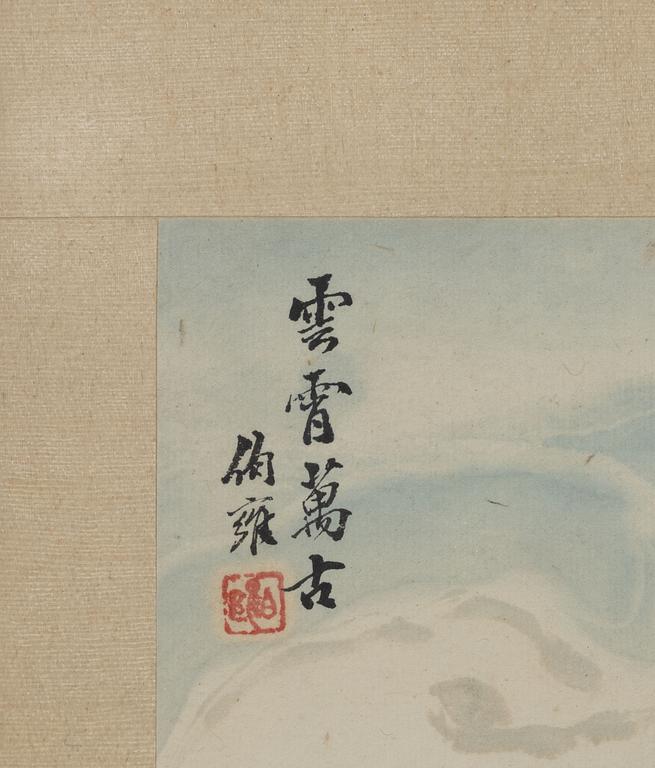 雲霄萬古
伯雍